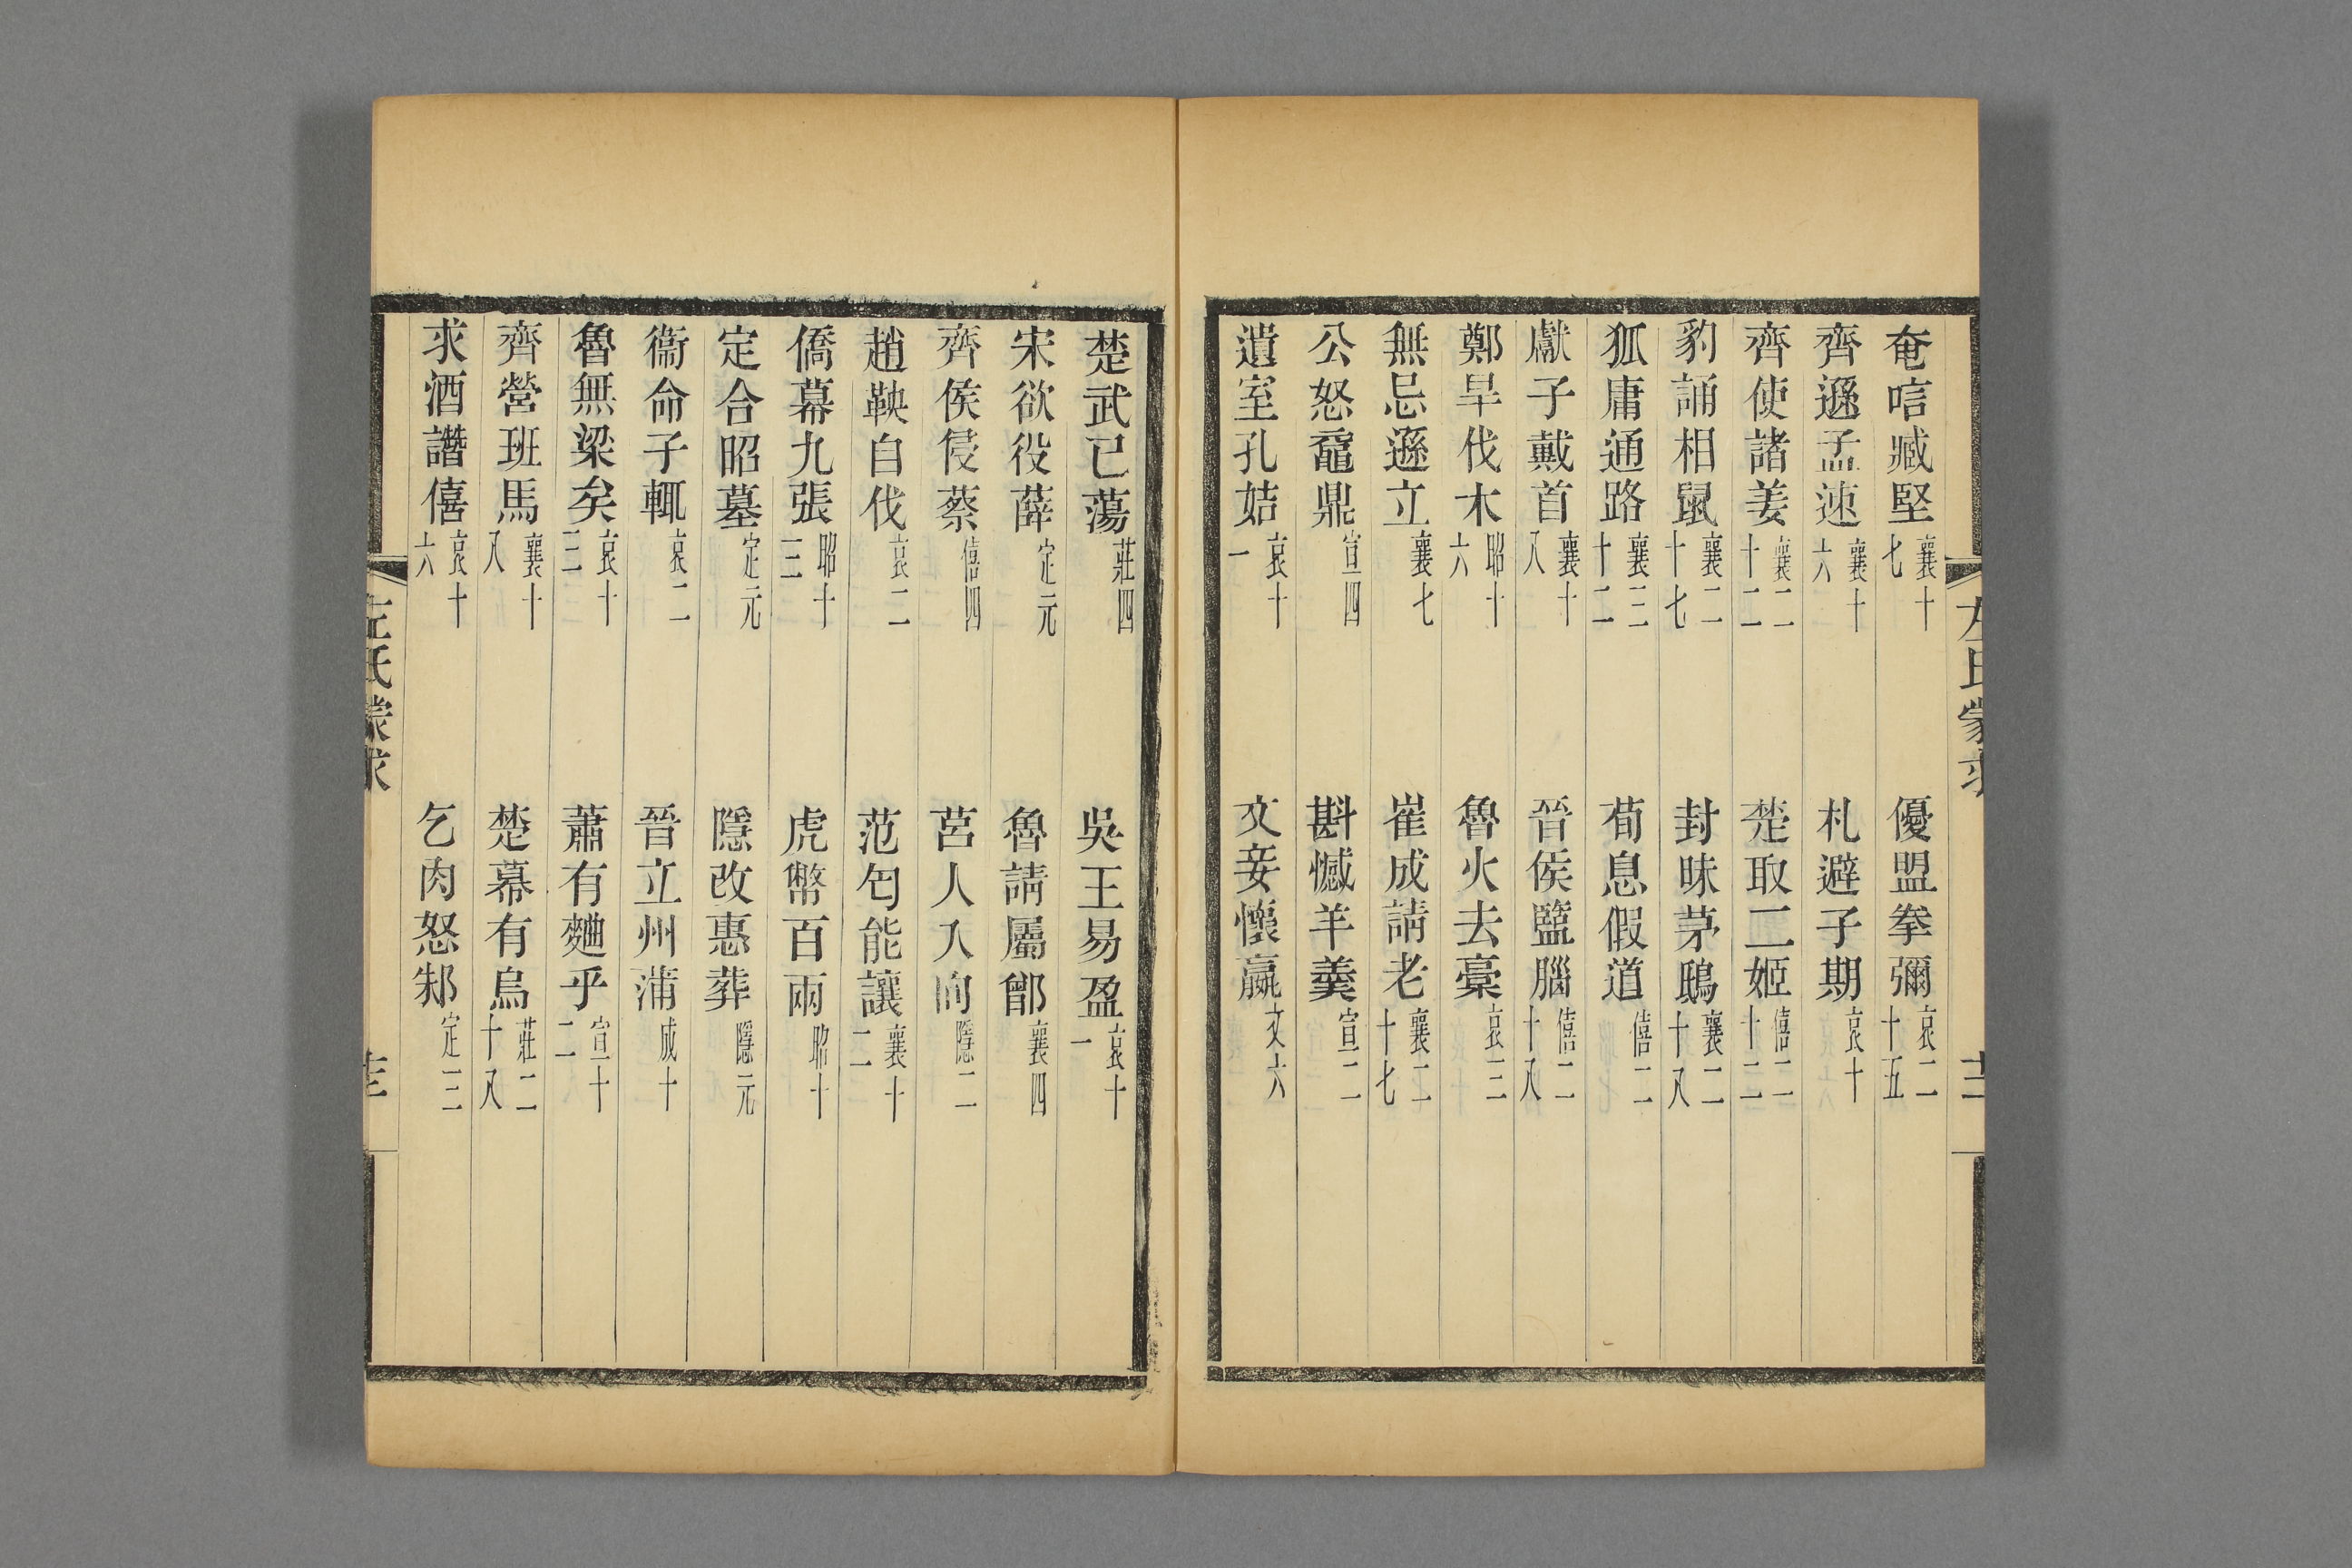 奄唁臧堅襄十七　優盟拳彌哀二十五
齊遜孟速襄十六　札避子期哀十
齊使諸姜襄二十二　楚取二姬僖二十二
豹誦相鼠襄二十七　封昧茅鴟襄二十八
狐庸通路襄三十二　荀息假道僖二
獻子戴首襄十八　晉侯盬腦僖二十八
鄭旱伐木昭十六　魯火去槀哀三
無忌遜立襄七　崔成請老襄二十七
公怒黿鼎宣四　斟憾羊羹宣二
遺室孔姞哀十一　文妾懷嬴文六
楚武已蕩莊四　吳王易盈哀十一
宋欲役薛定元　魯請屬鄫襄四
齊侯侵蔡僖四　莒人入向隱二
趙鞅自伐哀二　范匄能讓襄十二
僑幕九張昭十三　虎幣百兩昭十
定合昭墓定元　隱改惠葬隱元
衞命子輒哀二　晉立州蒲成十
魯無粱矣哀十三　蕭有麯乎宣十二
齊營班馬襄十八　楚幕有烏莊二十八
求酒譖僖哀十六　乞肉怒邾定三
左氏蒙求